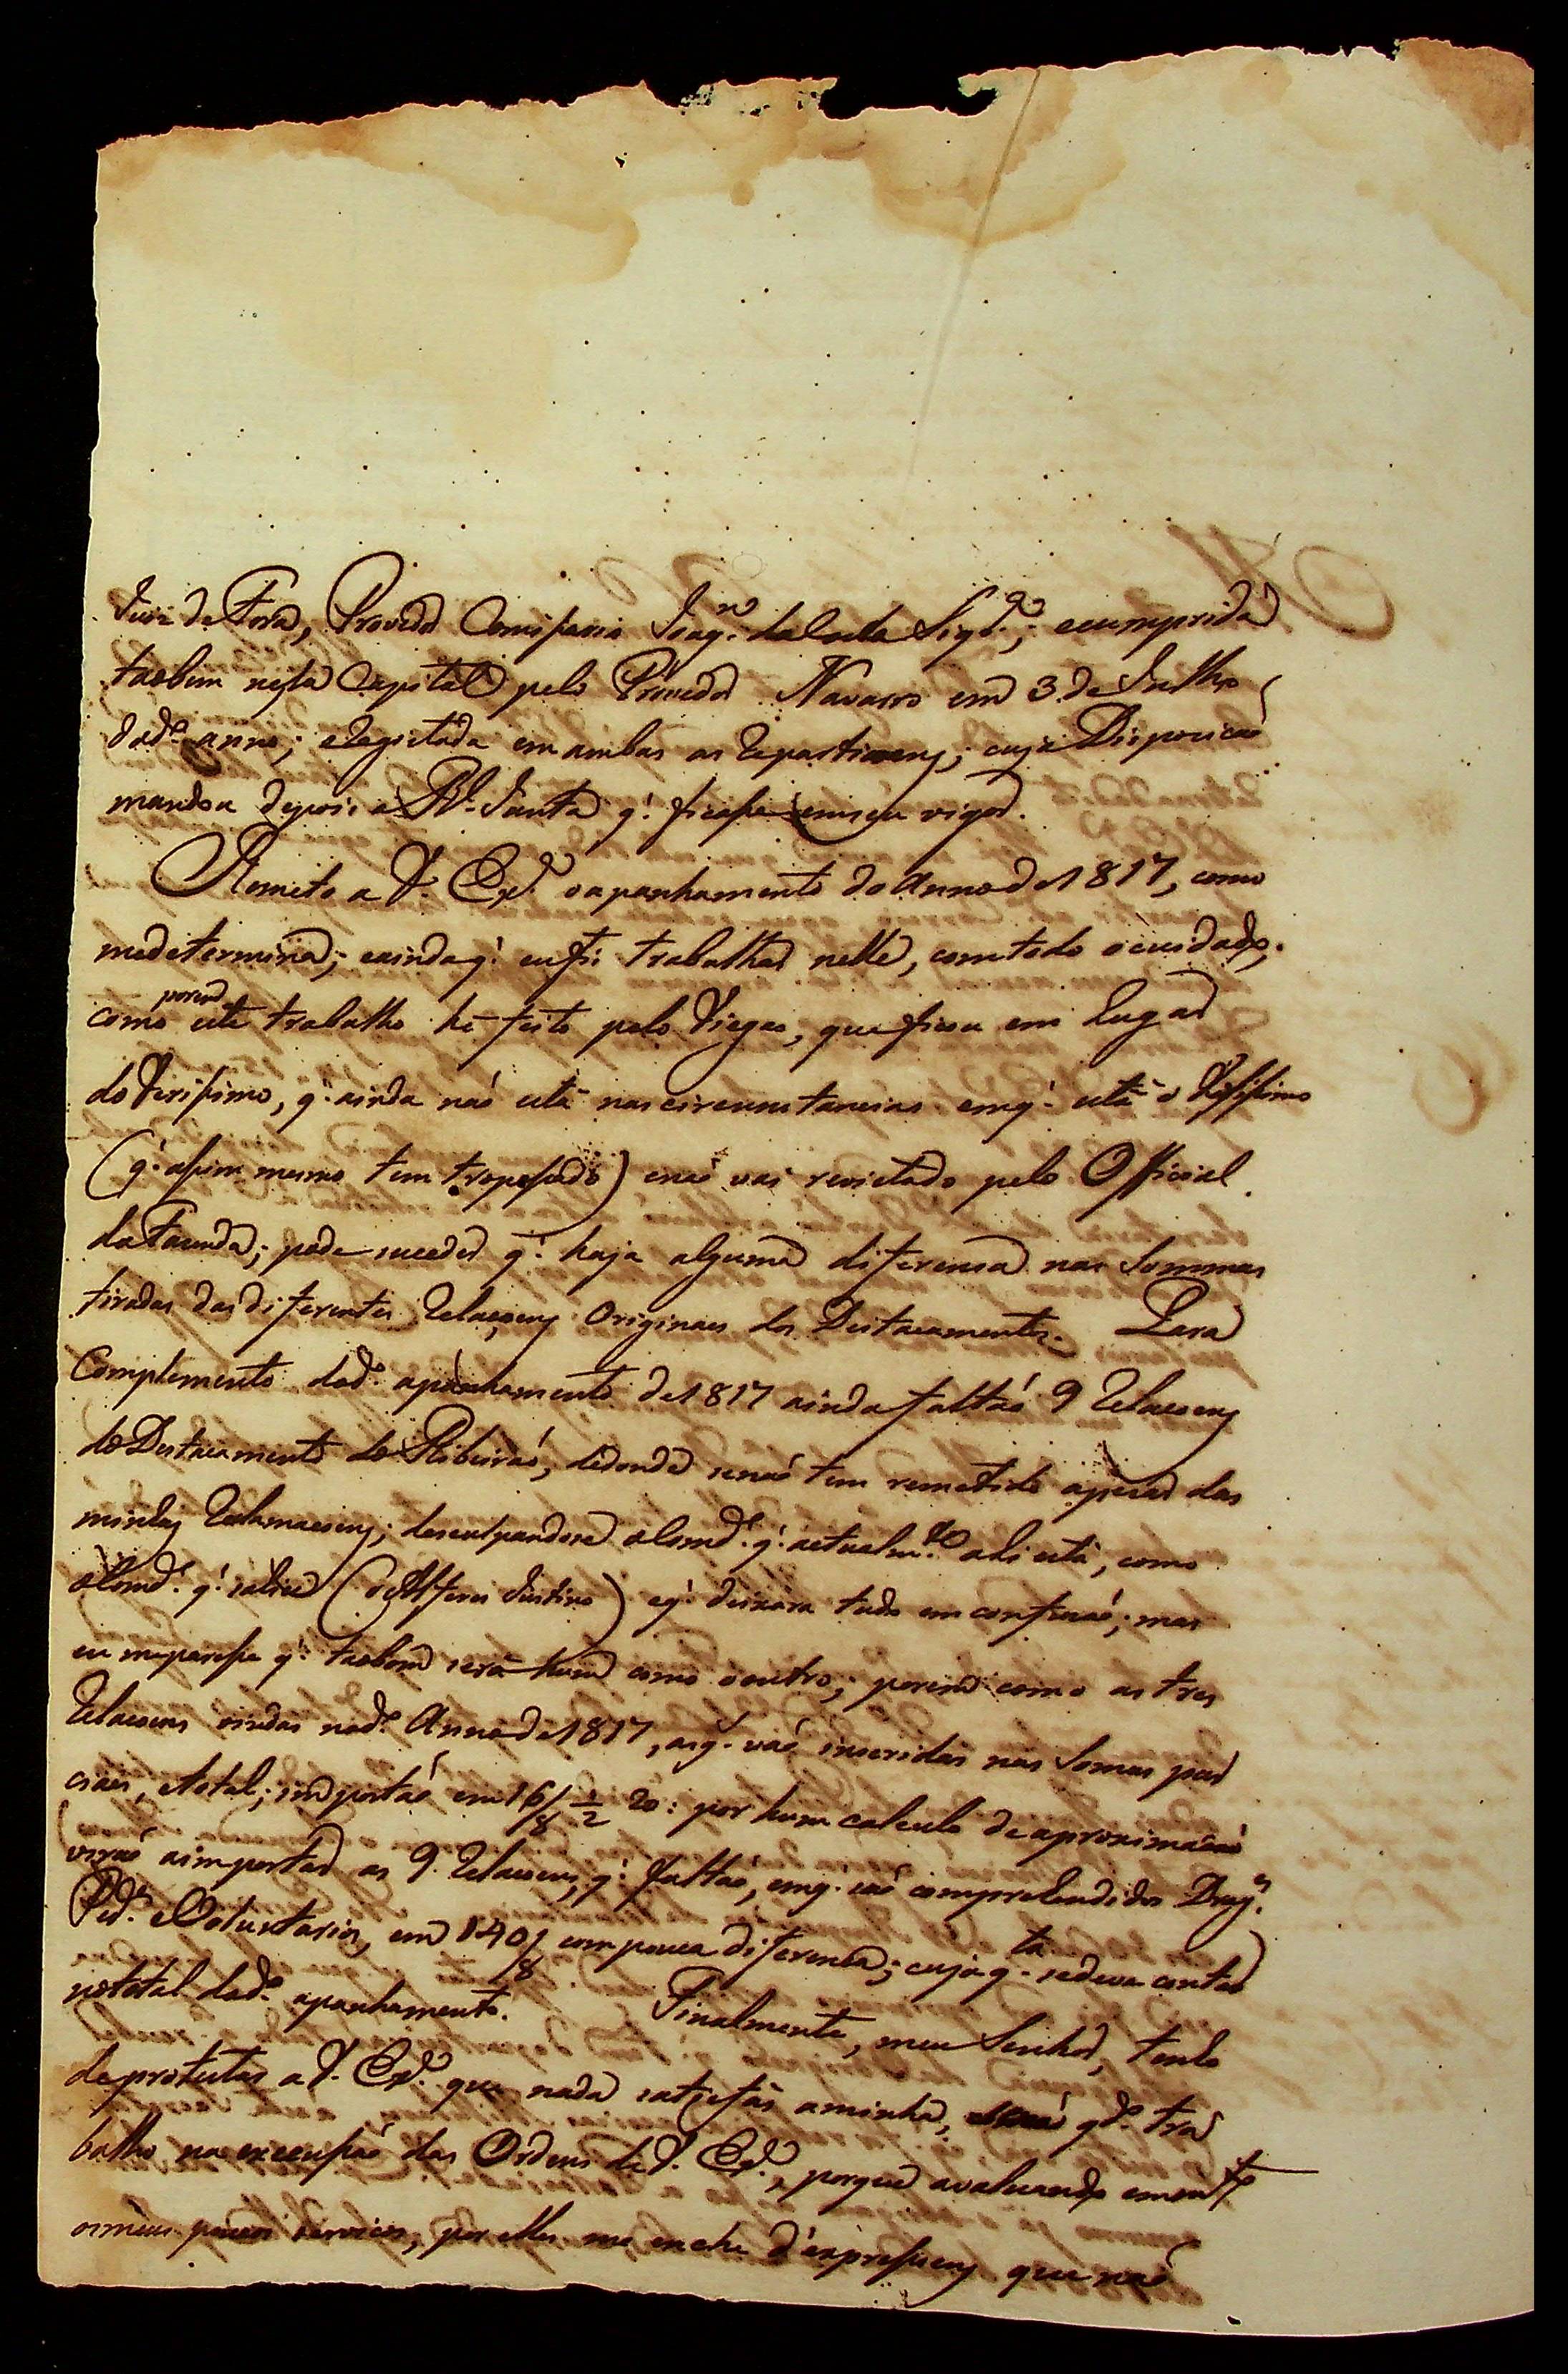 Juiz de Fora, Provedor Comissario Joaq.^m da Costa Siqr.^a; e cumprida
taobem nesta Capital pelo Provedor Navarro em 3 de Julho
dod.^o anno; e Registada em ambas as Repartiçoens; cuja Dispozicaõ
mandou depois a R.^l Junta q.' ficasse em seu vigor.
Remeto a V. Ex.^a o apanhamento do Anno de 1817, como
me determina; e ainda q.' eu fiz trabalhar nelle, com todo o cuidado;
porem
como este trabalho he feito pelo Viegas, que ficou em Lugar
do Verissimo, q.' ainda naõ está nas circunstancias em q.' está o Verissimo
(q.' assim mesmo tem tropessado) e naõ vai revistado pelo Official
da Fazenda; pode suceder q.' haja alguma diferensa nas Sommas
tiradas das diferentes Relaçoens Originaes dos Destacamentos. Para
Complemento dod.^o apanhamento de 1817 ainda faltaõ 9 Relacoens
do Destacamento do Ribeiraõ, dedonde se naõ tem remetido apezar das
minhas Reclamacoens; desculpandose o Comd.^e q.' actualm.^te ali está, como
o Comd.^e q.' sahiu (o Alferes Justino) e q.' deixára tudo em confuzaõ; mas
eu me paresse q.' taobem será hum como o outro; porem como as tres
Relacoens vindas nod.^o Anno de 1817, as q.' vaõ inseridas nas Somas par
ciaes, e total; importaõ em 16/8 1/2 20: por hum calculo de aproximacaõ
viraõ a importar as 9 Relacoens, q.' faltaõ, em q.' saõ comprehendidos Drag.^s
Ped.^s e Voluntarios, em 140/8 com pouca diferensa; cuja q.^ta se deve contar
no total dod.^o apanhamento. Finalmente, meu Senhor, tenho
de protestar a V. Ex.^a que nada satisfás a minha, q.^do tra
balho na execussaõ das Ordens de V. Ex.^a, porque avaluando em m.^to
os meus poucos servicos, por elles me enche d'expressoens que naõ